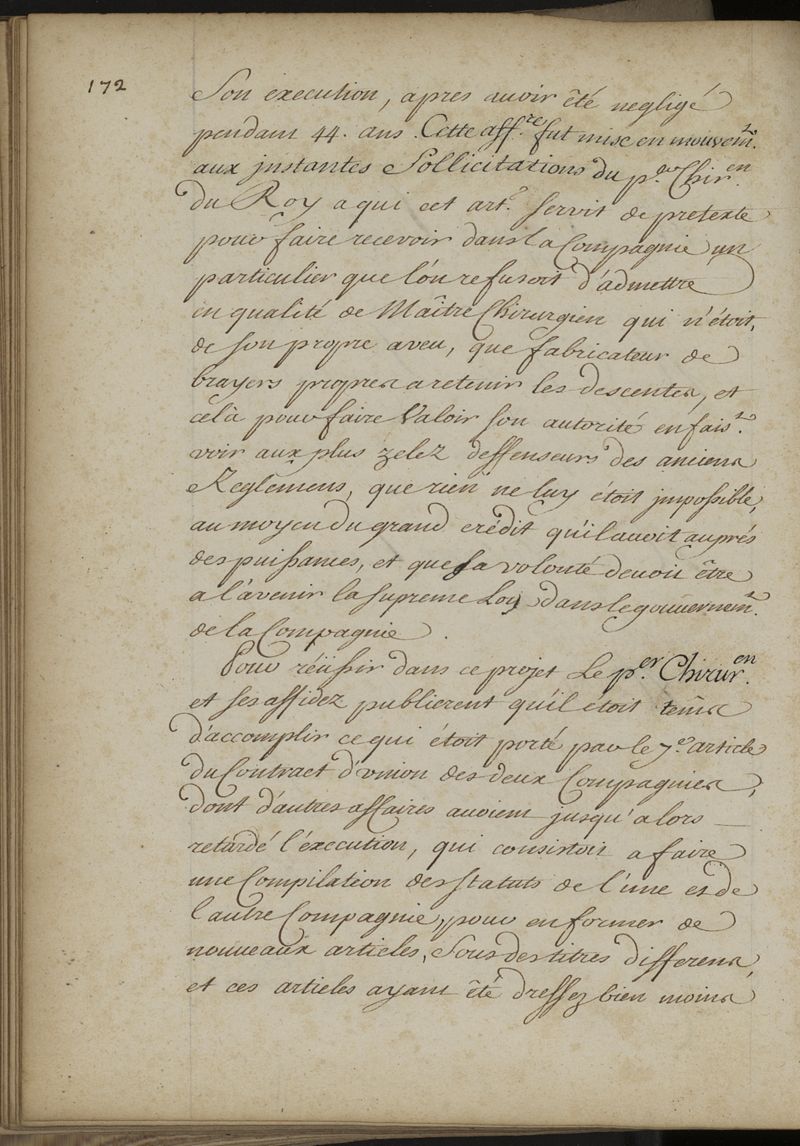 172
Son execution, apres avoir été negligé
pendant 44. ans. Cette aff.re fut mise en mouvem.t
aux jnstantes Sollicitations du p.er Chir.en
du Roy a qui cet art.e servit de pretexte
pour faire recevoir dans la Compagnie un
particulier que l'on refusoit d'admettre
en qualité de Maître Chirurgien qui n'étoit,
de son propre aveu, que fabricateur de
brayers propres a retenir les descentes, et
celà pour faire Valoir son autorité en fais.t
voir aux plus zelez deffenseurs des anciens
Reglemens, que rien ne luy étoit jmpossible,
au moyen du grand crédit qu'il avoit auprés
des puissances, et que sa volonté devoit être
a l'avenir la supreme Loy dans le gouvernem.t
de la Compagnie.
Pour réüssir dans ce projet Le p.er Chirur.en
et ses affidez publierent qu'il étoit tenu
d'accomplir ce qui étoit porté par le 7.e article
du Contract d'vnion des deux Compagnies,
dont d'autres affaires avoient jusqu'alors
retardé l'éxecution, qui consistoit a faire
une Compilation des statuts de l'une et de
l'autre Compagnie, pour en former de
nouveaux articles, Sous des titres differens,
et ces articles ayant été dressez bien moins